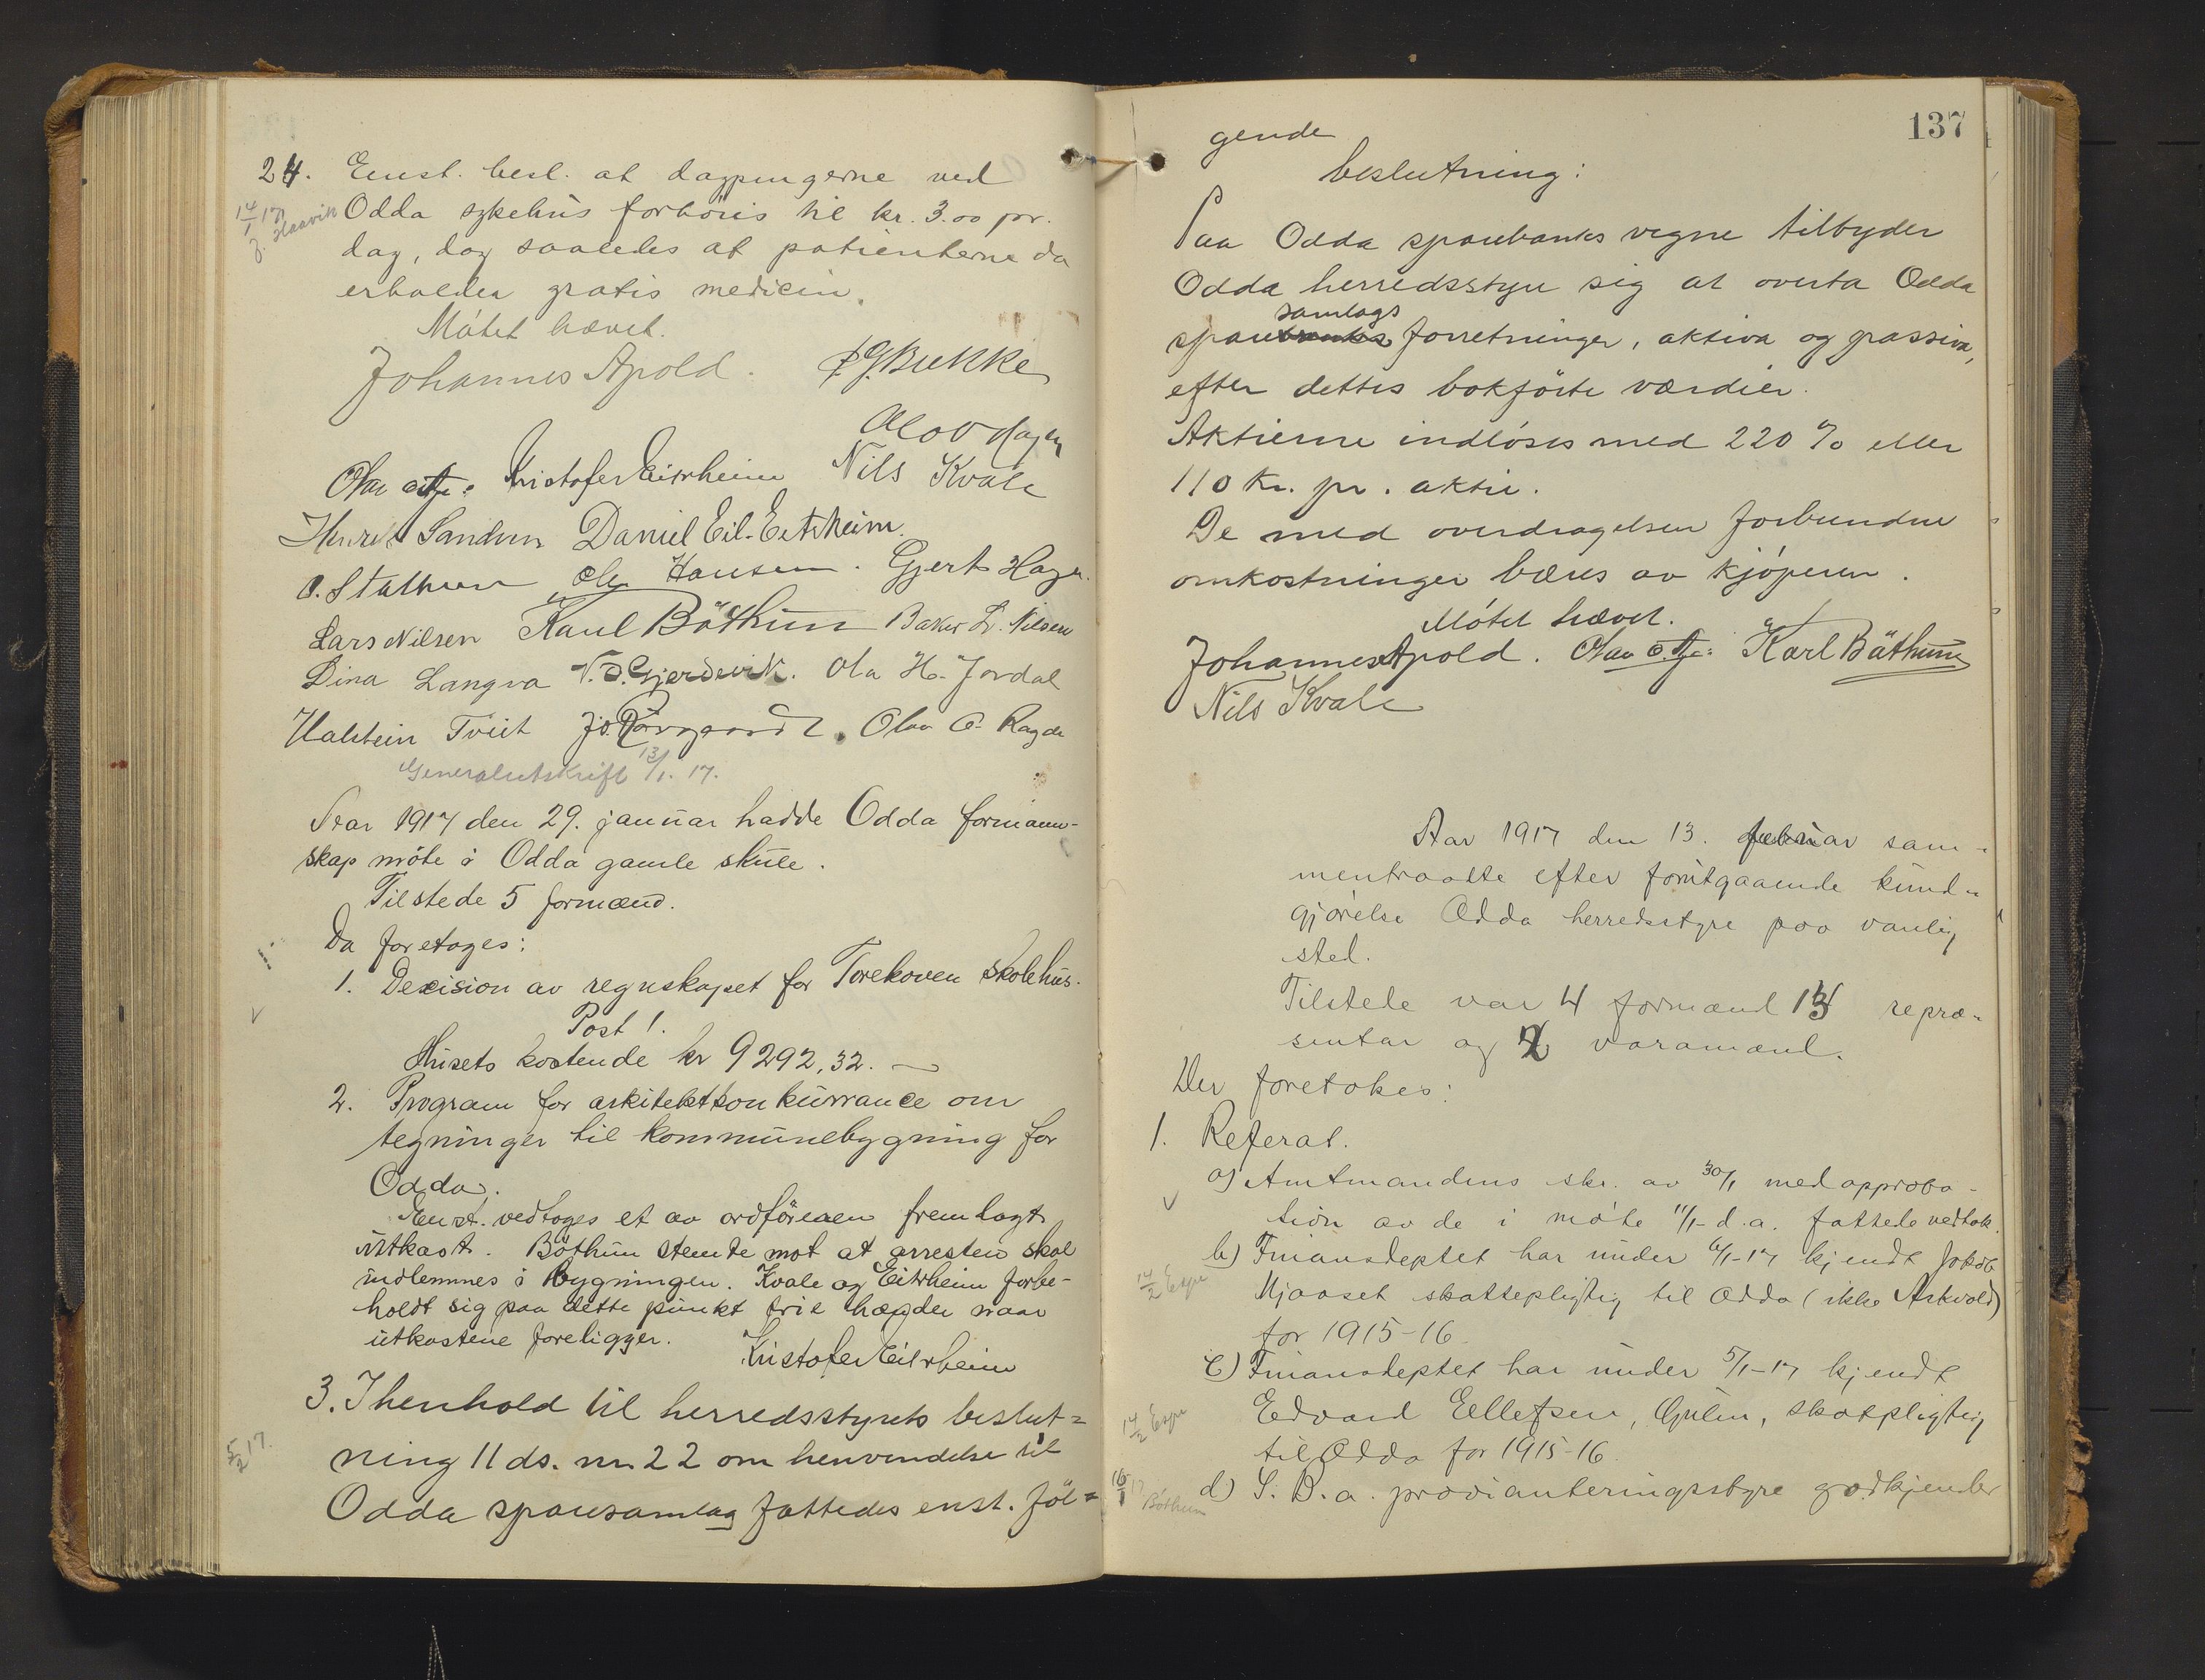 24. Enst. besl. at dagpengerne ved
14/1 17 J. Haavik
Odda sykehus forhöies til kr. 3.00 pr.
dag, dog saaledes at patienterne da
erholder gratis medicin.
Mötet hævet.
Johannes Apold. P. G. Bukke
Olav Hagen
Kristofer Eitrheim Nils Kvale
Henrik Sandven Daniel Eil. Eitrheim.
O. Stathuen Ole Hansen. Gjert Hagen.
Lars Nilsen Karl Böthun Baker L. Nilsen
Dina Langva N. D. Gjerdevik. Ola H. Jordal
Halstein Tveit Olav O. Ragde
Generalutskrift 13/1. 17.
Aar 1917 den 29. januar hadde Odda formann-
skap möte i Odda gamle skule.
Tilstede 5 formænd.
Da foretoges:
1. Decision av regnskapet for Torekoven skolehus.
Post 1.
Husets kostende kr 9292,32.
2. Program for arkitektkonkurrance om
tegninger til kommunebygning for
Odda.
Enst. vedtoges et av ordföreren fremlagt
utkast. Böthun stemte mot at arresten skal
indlemmes i bygningen. Kvale og Eitrheim forbe-
holdt sig paa dette punkt frie hænder naar
utkastene foreligger. Kristofer Eitrheim
3. I henhold til herredsstyrets beslut=
5/2 17.
ning 11 ds. nr. 22 om henvendelse til
Odda sparesamlag fattedes enst. föl=
137
gende
beslutning:
Paa Odda sparebanks vegne tilbyder
Odda herredsstyre sig at overta Odda
samlags
sparebanks forretninger, aktiva og passiva,
efter dettes bokförte værdier.
Aktierne indlöses med 220 % eller
110 kr. pr. aktie.
De med overdragelsen forbundne
omkostninger bæres av kjöperen.
Mötet hævet.
Johannes Apold. Karl Bäthun
Nils Kvale
Aar 1917 den 13. februar sam-
mentraatte efter forutgaaende kund-
gjörelse Odda herredsstyre paa vanlig
sted.
Tilstede var 4 formænd 13 repræ-
sentar og 2 varamænd.
Der foretokes:
1. Referat.
a) Amtmandens skr. av 30/1 med approba-
tion av de i möte 11/1 d.a. fattede vedtak.
b) Finansdeptet har under 6/1-17 kjendt Jakob
14/2 Espe
Mjaaset skattepligtig til Odda (ikke Askvold)
for 1915-16.
c) Finansdeptet har under 5/1-17 kjendt
14/2 Espe
Edvard Ellefsen, Gulen, skatpligtig
til Odda for 1915-16.
d) S. B. a. provianteringsstyre godkjender
Böthun